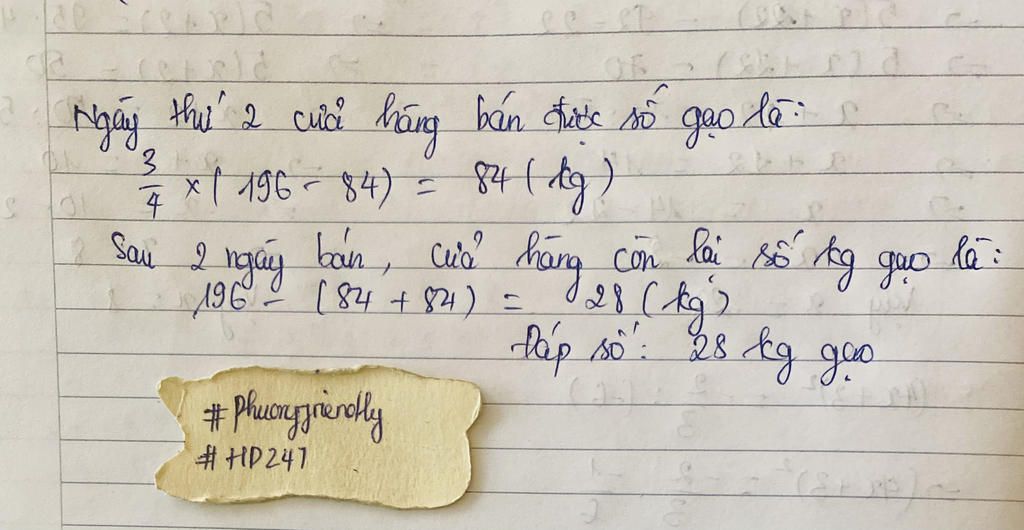 Ngày thứ 2 cửa hàng bán được số gạo là:
3/4 × (196 - 84) = 84 (kg)
Sau 2 ngày bán, cửa hàng còn lại số kg gạo là:
196 - (84 + 84) = 28 (kg)
Đáp số: 28 kg gạo
#phuongfriendly
#HD247